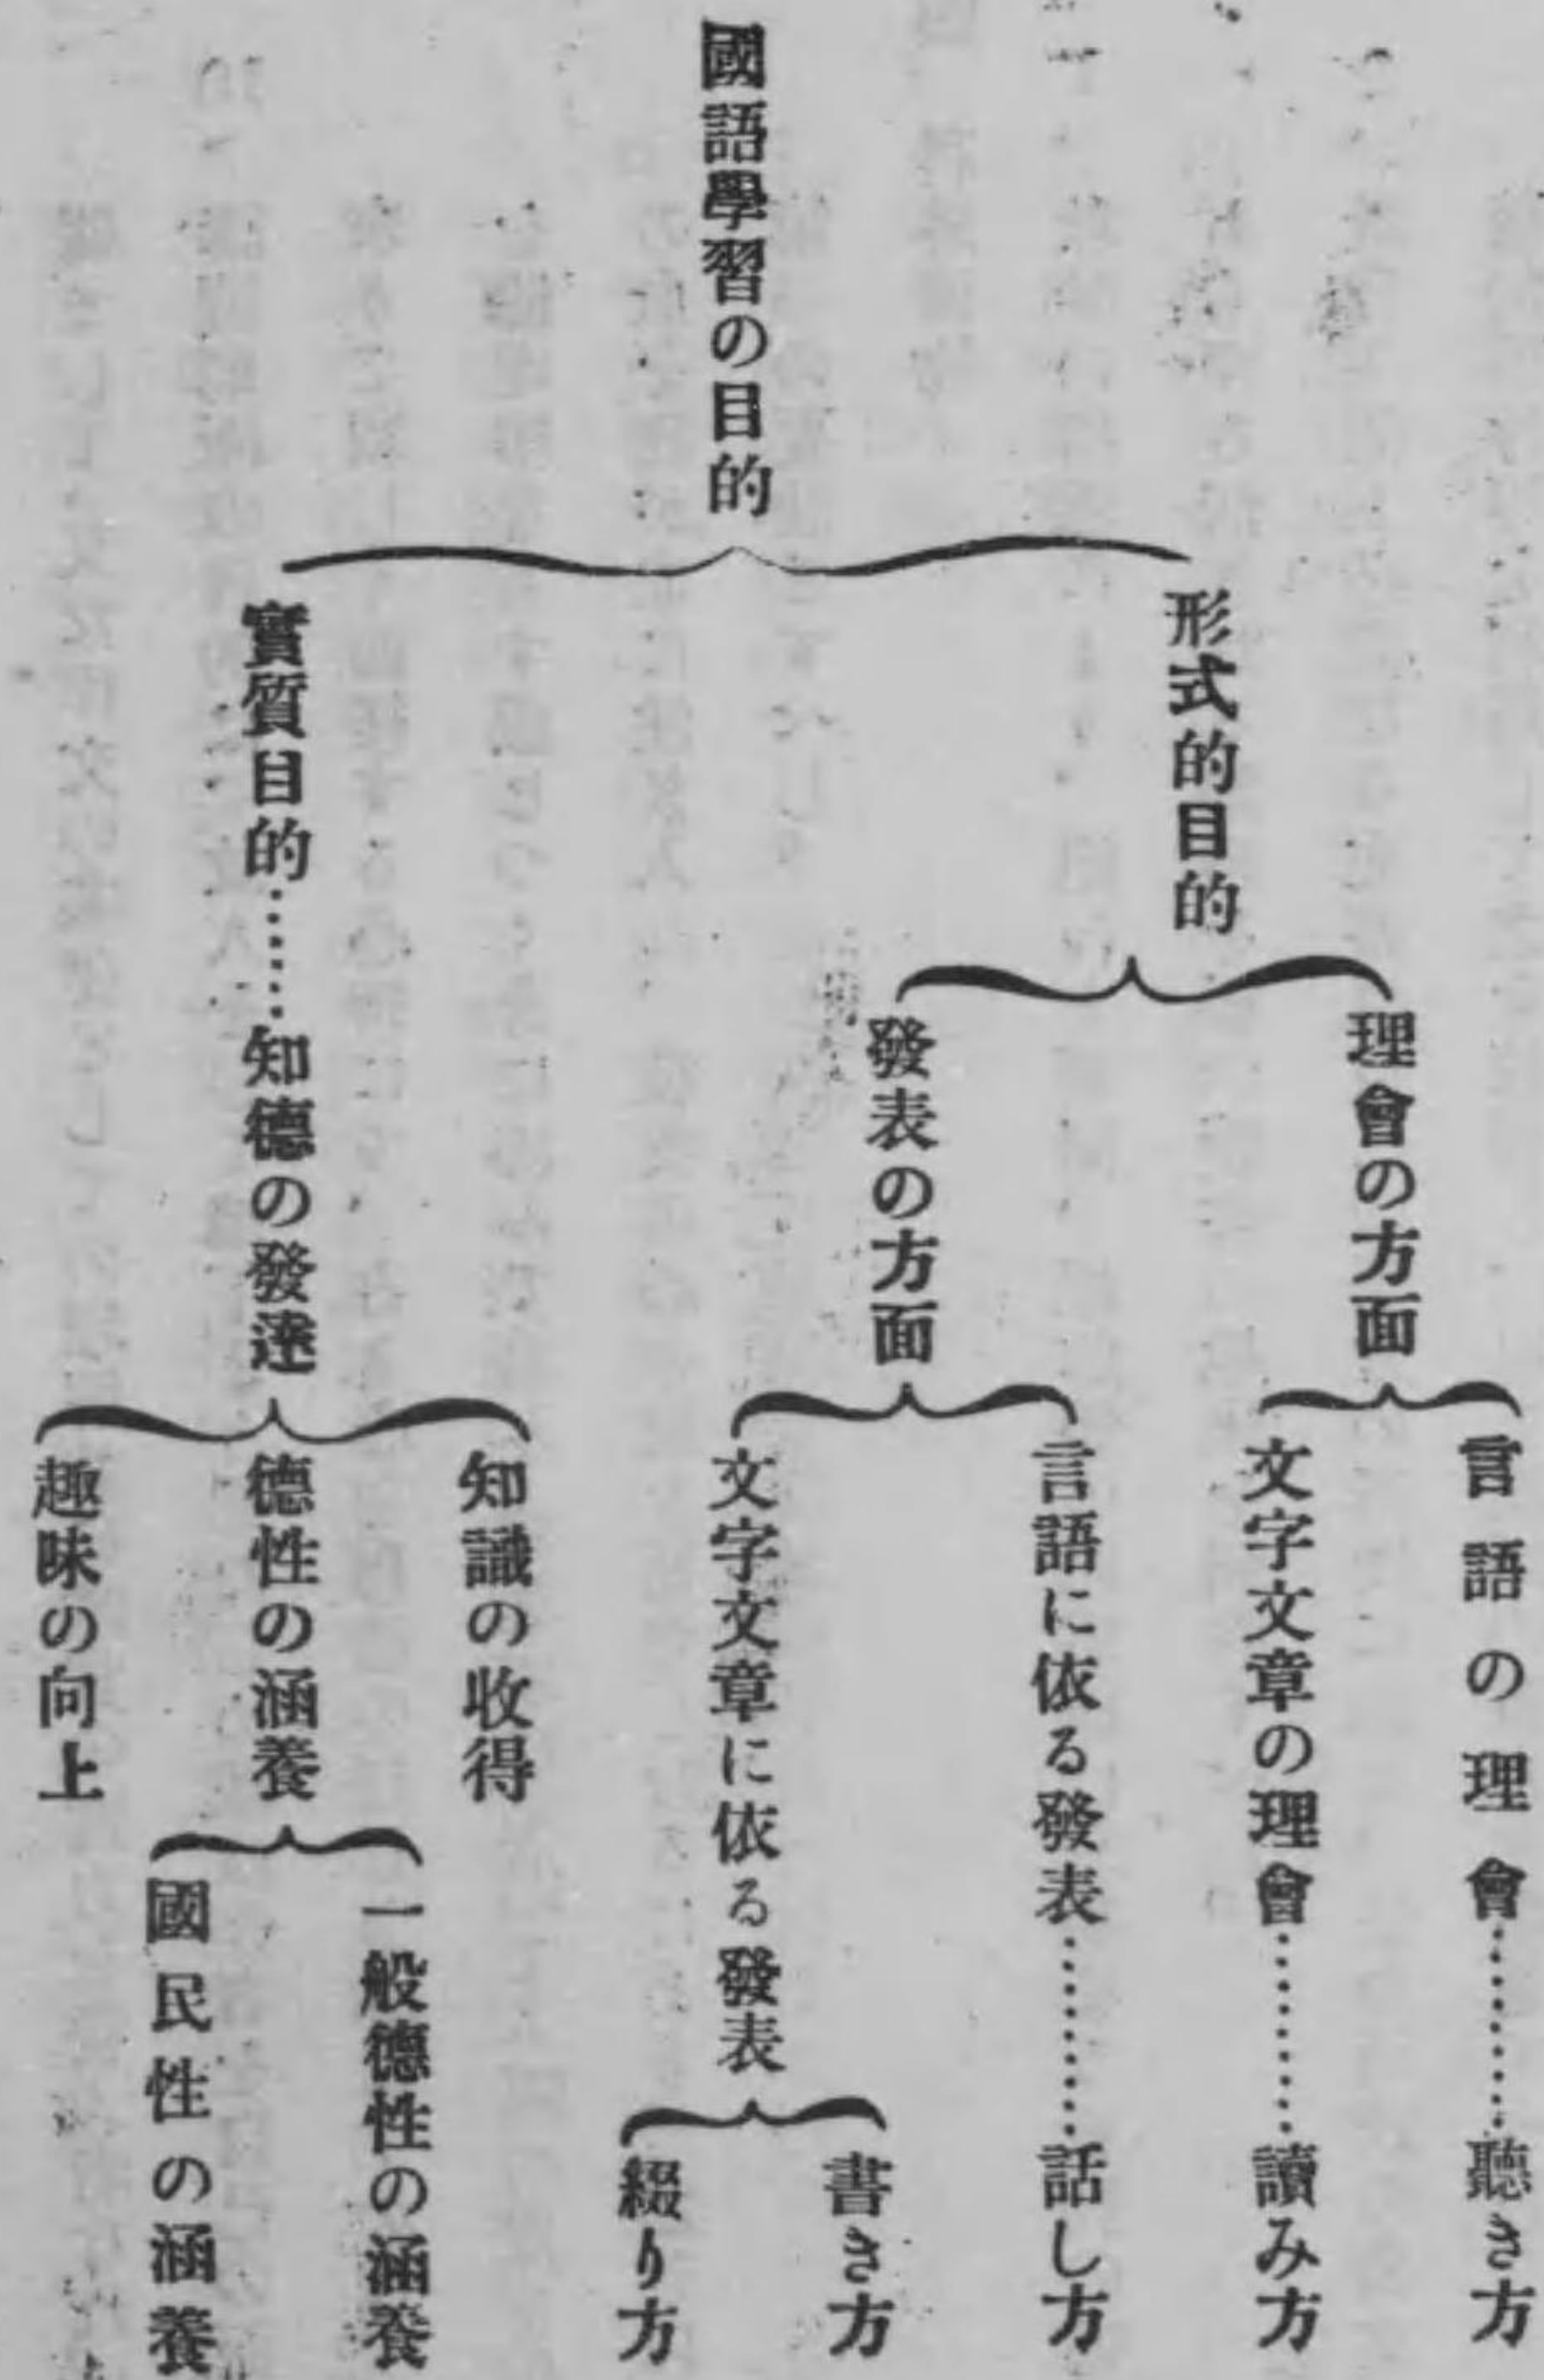 國語學習の目的
形式的目的
理會の方面
言語の理會………聽き方
文字文章の理會………讀み方
發表の方面
言語に依る發表………話し方
文字文章に依る發表
書き方
綴り方
實質目的………知德の發達
知識の收得
德性の涵養
一般德性の涵養
國民性の涵養
趣味の向上